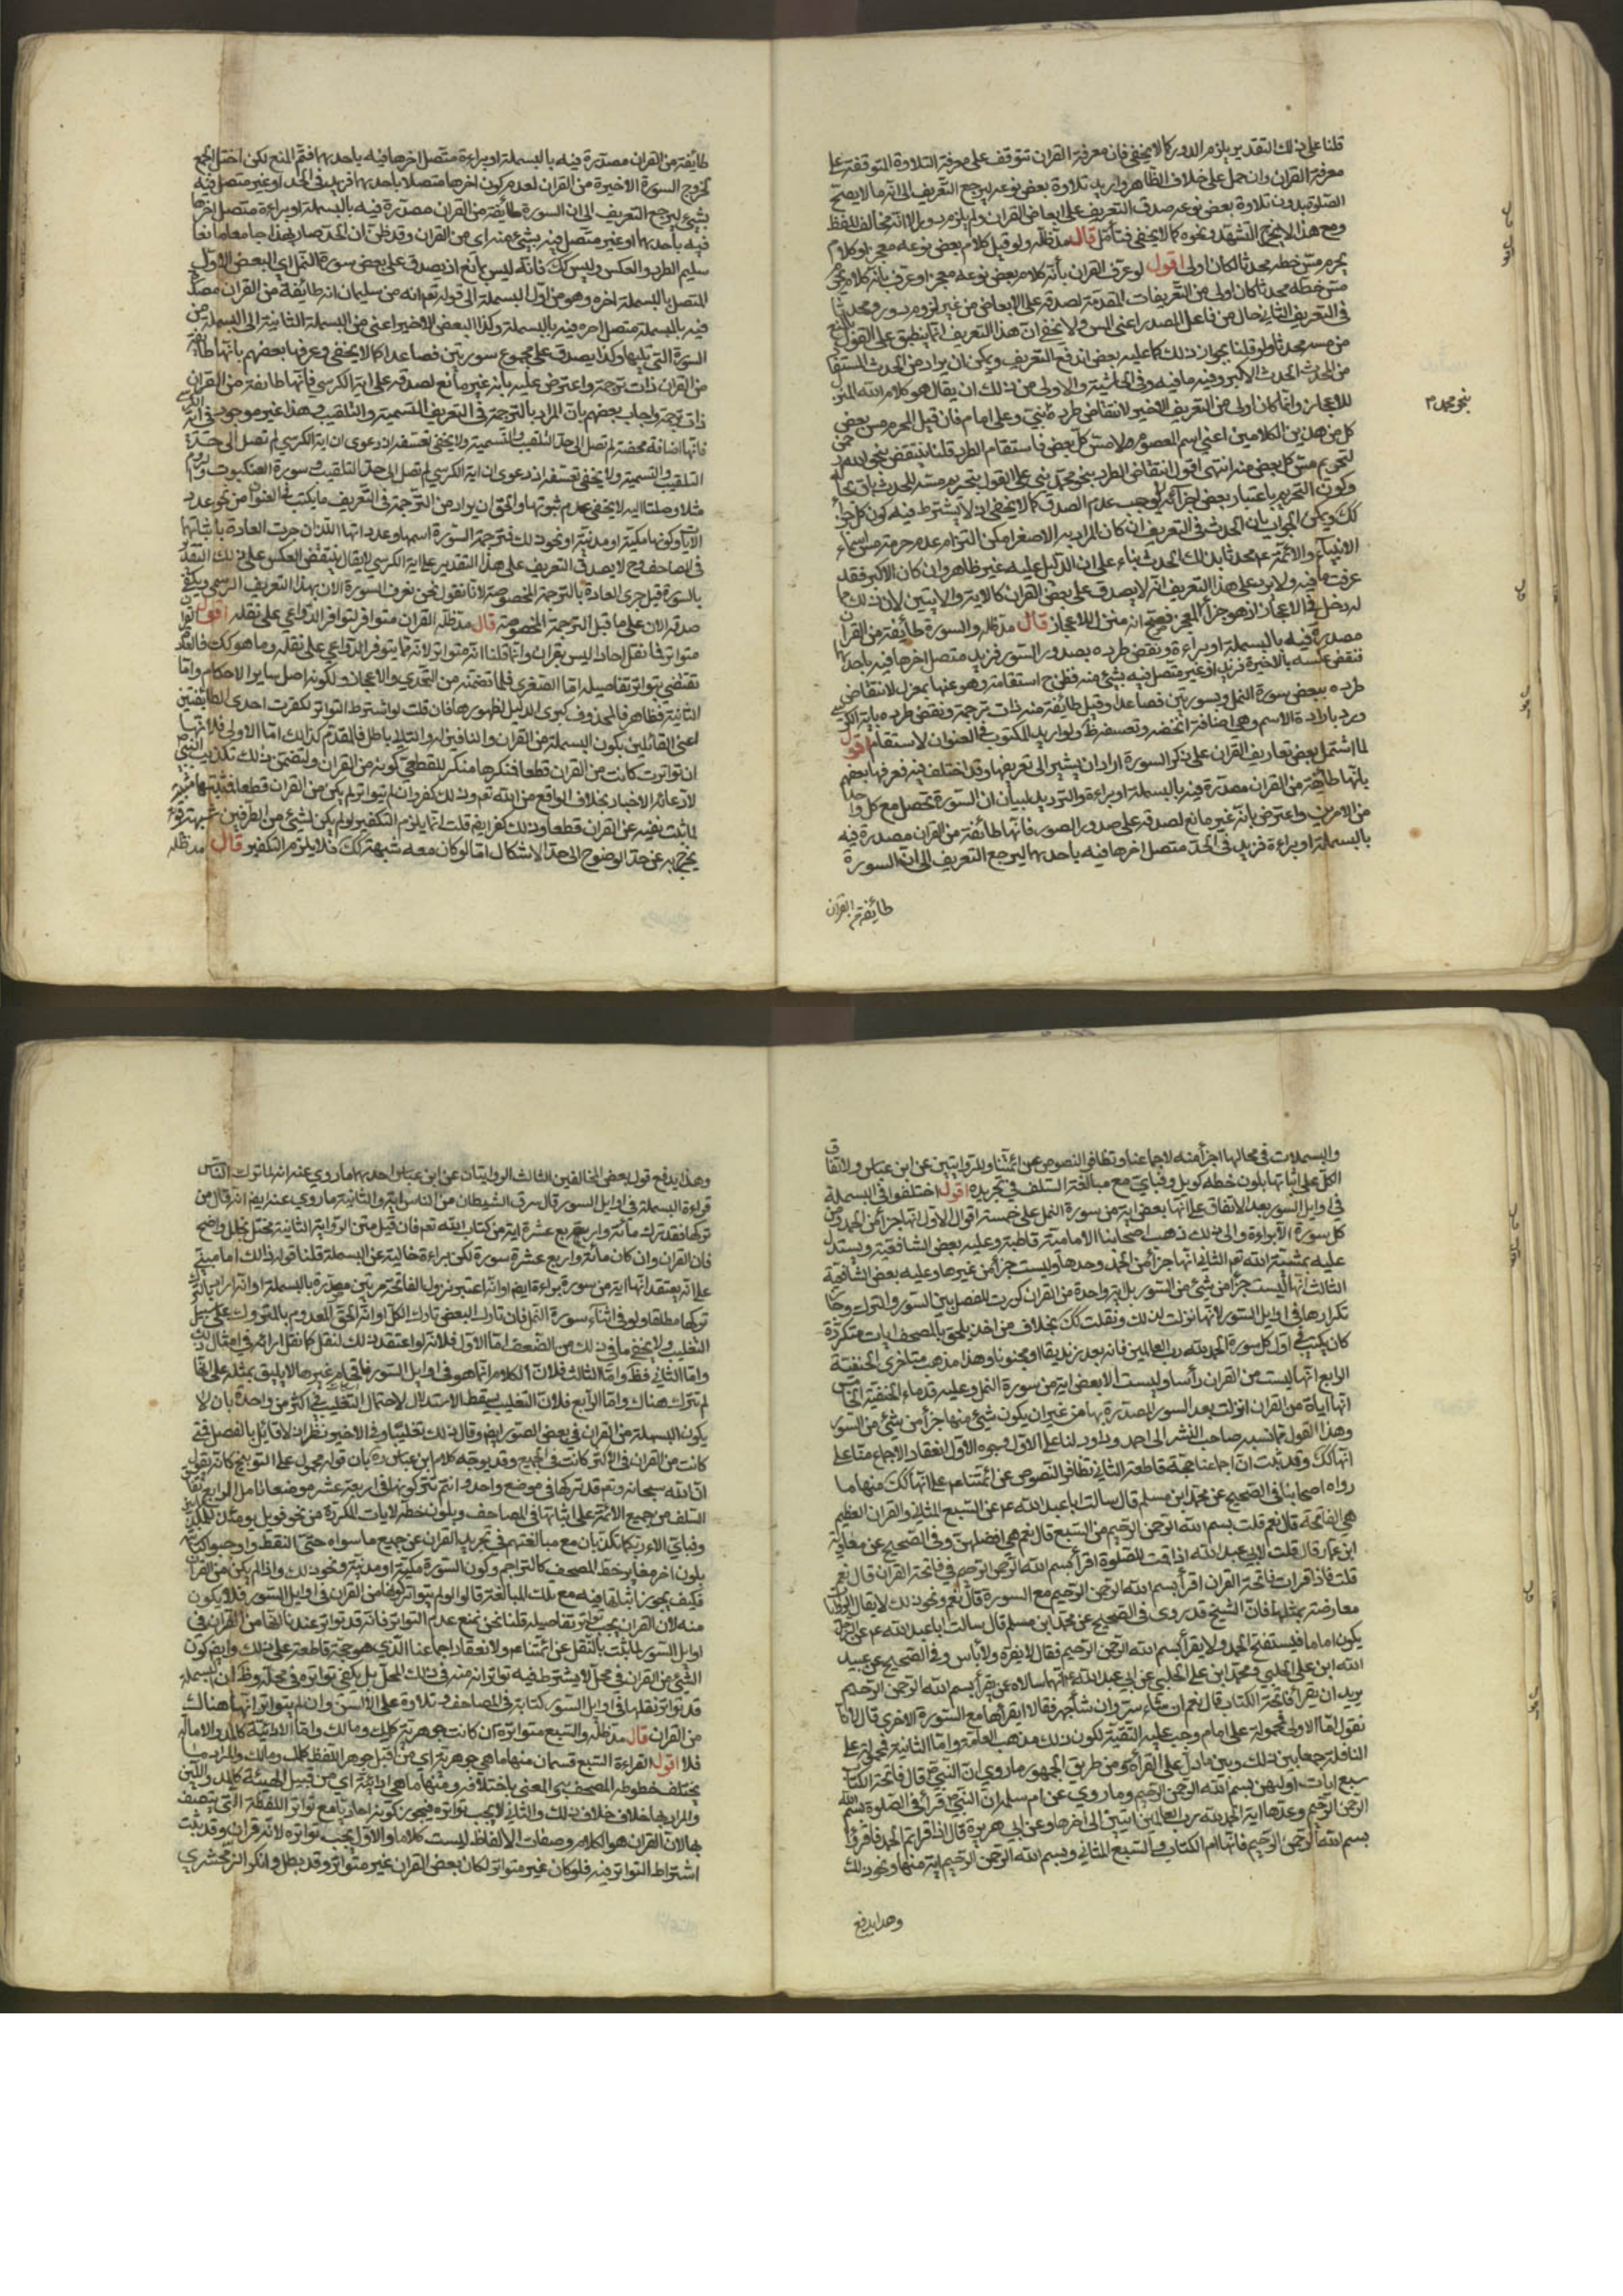 قلنا على ذلك التقدير يلزم الدور كما لا يخفى فان معرفة القران تتوقف على معرفة التلاوة المتوقفة على
معرفة القران وان حمل على خلاف الظاهر واريد تلاوة بعض نوعه ليرجع التعريف الى انه ما لا يصح
الصلوة بدون تلاوة بعض نوعه صدق التعريف على ابعاض القران ولم يلزم دور الا انه مخالف للفظ
ومع هذا لا يخرج التشهد ونحوه كما لا يخفى فتأمل قال مد ظله ولو قيل كلام بعض نوعه معجز او كلام
يحرم مس خطه محدثا لكان اولى اقول لو عرف القران بأنه كلام بعض نوعه معجز او عرف بأنه كلام يحرم
مس خطه محدثا كان اولى من التعريفات المتقدمة لصدقه على الابعاض من غير لزوم دور ومحدثا
في التعريف الثاني حال من فاعل المصدر اعني المس ولا يخفى ان هذا التعريف انما ينطبق على القول بالمنع
من مسه محدثا ولو قلنا بجواز ذلك كما عليه بعض اندفع التعريف ويمكن ان يراد من الحدث المستفاد
من المحدث الحدث الاكبر وفيه ما فيه وفي الحاشية والاولى من ذلك ان يقال هو كلام الله المنزل
للاعجاز وانما كان اولى من التعريف الاخير لانتقاض طرده بنبي وعلي امام فان قيل المحرم مس بعض
كل من هذين الكلامين اعني اسم المعصوم لا مس كل بعض فاستقام الطرد قلنا ينتقض بنحو الله
لتحريم مس كل بعض منه انتهى اقول انتقاض الطرد بنحو محمد نبي على القول بتحريم مسه للمحدث باق بحاله
وكون التحريم باعتبار بعض اجزائه لا يوجب عدم الصدق كما لا يخفى اذ لا يشترط فيه كون كل جزء
كك ويمكن الجواب بان الحدث في التعريف ان كان المراد به الاصغر امكن التزام عدم حرمة مس اسماء
الانبياء والائمة عم محدثا بذلك الحدث بناء على ان الدليل عليه غير ظاهر وان كان الاكبر فقد
عرفت ما فيه ولا يرد على هذا التعريف انه لا يصدق على بعض القران كالاية والايتين لان ذلك مما
له دخل في الاعجاز اذ هو جزء المعجز فصح انه منزل للاعجاز قال مد ظله والسورة طائفة من القران
مصدرة فيه بالبسملة او براءة ونقض طرده بصدور السور فزيد متصل اخرها فيه باحدهما
فنقض عكسه بالاخيرة فزيد او غير متصل فيه بشئ منه فظن ح استقامته وهو عنها بمعزل لانتقاض
طرده ببعض سورة النمل وبسورتين فصاعدا وقيل طائفة منه ذات ترجمة ونقض طرده باية الكرسي
ورد بارادة الاسم وهي اضافة محضة وتعسفه ظ ولو اريد المكتوب في العنوان لاستقام اقول
لما اشتمل بعض تعاريف القران على ذكر السورة اراد ان يشير الى تعريفها وقد اختلف فيه فعرفها بعضهم
بانها طائفة من القران مصدرة فيه بالبسملة او براءة والترديد لبيان ان السورة تحصل مع كل واحد
من الامرين واعترض بأنه غير مانع لصدقه على صدور السور فانها طائفة من القران مصدرة فيه
بالبسملة او براءة فزيد في الحد متصل اخرها فيه باحدهما ليرجع التعريف الى ان السورة
طائفة من القران
بنحو محمد م
طائفة من القران مصدرة فيه بالبسملة او براءة متصل اخرها فيه باحدهما فتم المنع لكن اختل الجمع
لخروج السورة الاخيرة من القران لعدم كون اخرها متصلا باحدهما فزيد في الحد او غير متصل فيه
بشئ ليرجع التعريف الى ان السورة طائفة من القران مصدرة فيه بالبسملة او براءة متصل اخرها
فيه باحدهما او غير متصل فيه بشئ منه اي من القران وقد ظن ان الحد صار بهذا جامعا مانعا
سليم الطرد والعكس وليس كك فانه ليس بمانع اذ يصدق على بعض سورة النمل اي البعض الاول
المتصل بالبسملة اخره وهو من اول البسملة الى قوله تعم انه من سليمان انه طائفة من القران مصدر
فيه بالبسملة متصل اخره فيه بالبسملة وكذا البعض الاخير اعني من البسملة الثانية الى البسملة من
السورة التي تليها وكذا يصدق على مجموع سورتين فصاعدا كما لا يخفى وعرفها بعضهم بانها طائفة
من القران ذات ترجمة واعترض عليه بانه غير مانع لصدقه على اية الكرسي فانها طائفة من القران
ذات ترجمة واجاب بعضهم بان المراد بالترجمة في التعريف التسمية والتلقيب وهذا غير موجود في اية الكرسي
فانها اضافة محضة لم تصل الى حد التلقيب والتسمية ولا يخفى تعسفه اذ دعوى ان اية الكرسي لم تصل الى حد
التلقيب والتسمية ولا يخفى تعسفه اذ دعوى ان اية الكرسي لم تصل الى حد التلقيب وسورة العنكبوت والروم
مثلا وصلتا اليه لا يخفى عدم ثبوتها والحق ان يراد من الترجمة في التعريف ما يكتب في العنوان من نحو عدد
الايات وكونها مكية او مدنية او نحو ذلك فترجمة السورة اسمها وعدد اياتها اللذان جرت العادة باثباتها
في المصاحف وح لا يصدق التعريف على هذا التقدير على اية الكرسي لا يقال ينتقض العكس على ذلك التقدير
بالسورة قبل جري العادة بالترجمة المخصوصة لانا نقول نحن نعرف السورة الان بهذا التعريف الرسمي ويكفي
صدقه الان على ما قبل الترجمة المخصوصة قال مد ظله القران متواتر لتوافر الدواعي على نقله اقول القران
متواتر فما نقل احادا ليس بقران وانما قلنا انه متواتر لانه مما يتوفر الدواعي على نقله وما هو كك فالعادة
تقتضي بتواتر تفاصيله اما الصغرى فلما تضمنه من التحدي والاعجاز ولكونه اصل ساير الاحكام واما
الثانية فظاهر فالمحذوف كبرى الدليل لظهورها فان قلت لو اشترط التواتر لكفرت احدى الطائفتين
اعني القائلين بكون البسملة من القران والنافين له والتالي باطل فالمقدم كذلك اما الاولى فلانها
ان تواترت كانت من القران قطعا فمنكرها منكر للقطعي كونه من القران ولتضمن ذلك تكذيب النبي ص
لادعائه الاخبار بخلاف الواقع من الله تعم وذلك كفر وان لم يتواتر لم يكن من القران قطعا فمثبتها مثبت
لما ثبت نفيه عن القران قطعا وذلك كفر ايضم قلت انما يلزم التكفير لو لم يكن لشئ من الطرفين شبهة قوية
يخرج به عن حد الوضوح الى حد الاشكال اما لو كان معه شبهة كك فلا يلزم التكفير قال مد ظله
والبسملات في محالها اجزأ منه لاجماعنا وتظافر النصوص عن ائمتنا وللروايتين عن ابن عباس ولاتفاق
الكل على اثباتها بلون خطه كويل وفباي مع مبالغة السلف في تجريده اقول اختلفوا في البسملة
في اوايل السور بعد الاتفاق على انها بعض اية من سورة النمل على خمسة اقوال الاول انها جزأ من الحمد ومن
كل سورة الا براءة والى ذلك ذهب اصحابنا الامامية قاطبة وعليه بعض الشافعية ويستدل
عليه بمشية الله تعم الثاني انها جزأ من الحمد وحدها وليست جزأ من غيرها وعليه بعض الشافعية
الثالث انها ليست جزأ من شئ من السور بل اية واحدة من القران كررت للفصل بين السور والتبرك وجاز
تكرارها في اوايل السور لانها نزلت لذلك ونقلت كك بخلاف من اخذ يلحق بالمصحف ايات متكررة
كان يكتب في اول كل سورة الحمد لله رب العالمين فانه يعد زنديقا او مجنونا وهذا مذهب متاخري الحنفية
الرابع انها ليست من القران رأسا وليست الا بعض اية من سورة النمل وعليه قدماء الحنفية الخامس
انها اياة من القران انزلت بعدد السور المصدرة بها من غير ان يكون شئ منها جزأ من شئ من السور
وهذا القول مما نسبه صاحب النشر الى احمد وداود لنا على الاول وجوه الاول انعقاد الاجماع منا على
انها كك وقد ثبت ان اجماعنا حجة قاطعة الثاني تظافر النصوص عن ائمتنا عم على انها كك منها ما
رواه اصحابنا في الصحيح عن محمد ابن مسلم قال سالت ابا عبد الله ع عن السبع المثاني والقران العظيم
هي الفاتحة قال نعم قلت بسم الله الرحمن الرحيم من السبع قال نعم هي افضلهن وفي الصحيح عن معاوية
ابن عمار قال قلت لابي عبد الله اذا قمت للصلوة اقرأ بسم الله الرحمن الرحيم في فاتحة القران قال نعم
قلت فاذا قرات فاتحة القران اقرأ بسم الله الرحمن الرحيم مع السورة قال نعم ونحو ذلك لا يقال الروايات
معارضة بمثلها فان الشيخ قد روى في الصحيح عن محمد ابن مسلم قال سالت ابا عبد الله ع عن الرجل
يكون اماما فيستفتح الحمد ولا يقرأ بسم الله الرحمن الرحيم فقال لا يضره ولا بأس وفي الصحيح عن عبيد
الله ابن علي الحلبي ومحمد ابن علي الحلبي عن ابي عبد الله ع انهما سالاه عمن يقرأ بسم الله الرحمن الرحيم
يريد ان يقرأ فاتحة الكتاب قال نعم ان شاء سر وان شاء جهر فقالا افيقرأها مع السورة الاخرى قال لا لانا
نقول اما الاولى فمحمولة على امام وجب عليه التقية لكون ذلك مذهب العامة واما الثانية فمحمولة على
النافلة جمعا بين ذلك وبين ما دل على القرأة ومن طريق الجمهور ما روي ان النبي ص قال فاتحة الكتاب
سبع ايات اولهن بسم الله الرحمن الرحيم وما روي عن ام سلمة ان النبي ص قرأ في الصلوة بسم الله
الرحمن الرحيم وعدها اية الحمد لله رب العالمين ايتين الى اخرها وعن ابي هريرة قال اذا قراتم الحمد فاقرؤا
بسم الله الرحمن الرحيم فانها ام الكتاب والسبع المثاني وبسم الله الرحمن الرحيم اية منها ونحو ذلك
وهذا يدفع
وهذا يدفع قول بعض المخالفين الثالث الروايتان عن ابن عباس احدهما ما روي عنه انه لما ترك الناس
قراءة البسملة في اوايل السور قال سرق الشيطان من الناس اية والثانية ما روي عنه ايضم انه قال من
تركها فقد ترك مائة واربع عشرة اية من كتاب الله تعم فان قيل متن الرواية الثانية مختل بخلل واضح
فان القران وان كان مائة واربع عشرة سورة لكن براءة خالية عن البسملة قلنا قوله ذلك اما مبني
على انه يعتقد انها اية من سورة براءة ايضم او انه اعتبر نزول الفاتحة مرتين مصدرة بالبسملة او انه اراد بالترك
تركها مطلقا ولو في اثناء سورة النمل فان تارك البعض تارك الكل او انه الحق المعدوم بالمتروك على سبيل
التغليب ولا يخفى ما في ذلك من الضعف اما الاول فلانه لو اعتقد ذلك لنقل كما نقل ارائه في امثال ذلك
واما الثاني فظ واما الثالث فلان الكلام انما هو في اوايل السور فاقحام غيرها لا يليق بمثله على انها
لم تترك هناك واما الرابع فلان التغليب يسقط الاستدلال لاحتمال التغليب في اكثر من واحدة بان لا
يكون البسملة من القران في بعض الصور ايضم وقال ذلك تغليبا وفي الاخير نظر اذ لا قائل بالفصل فمتى
كانت من القران في الاكثر كانت في الجميع وقد يوجه كلام ابن عباس ره بان قوله محمول على التوبيخ كانه يقول
ان الله سبحانه وتعم قد تركها في موضع واحد وانتم تتركونها في اربعة عشر موضعا ناملا الرابع اتفاق
السلف من جميع الائمة على اثباتها في المصاحف وبلون خطه لايات المكررة من نحو فويل يومئذ للمكذبين
وفباي الاء ربكما تكذبان مع مبالغتهم في تجريد القران عن جميع ما سواه حتى النقط واوجبوا كتابته
بلون اخر مغاير خط المصحف كالتراجم وكون السورة مكية او مدنية ونحو ذلك واذا لم يكن من القران
فكيف يجوز اثباتها فيه مع تلك المبالغة قالوا لو لم يتواتر كونها من القران في اوايل السور فلا يكون
منه لان القران يجب تواتر تفاصيله قلنا نحن نمنع عدم التواتر فانه قد تواتر عندنا انها من القران في
اوايل السور لما ثبت بالنقل عن ائمتنا عم ولانعقاد اجماعنا الذي هو حجة قاطعة على ذلك وايضم كون
الشئ من القران في محل لا يشترط فيه تواتر انه منه في ذلك المحل بل يكفي تواتره في محله وظ ان البسملة
قد تواتر نقلها في اوايل السور كتابة في المصاحف وتلاوة على الالسن وان لم يتواتر انها هناك
من القران قال مد ظله والسبع متواترة ان كانت جوهرية كملك ومالك واما الادائية كالمد والامالة
فلا اقول القراءة السبع قسمان منها ما هي جوهرية اي من قبيل جوهر اللفظ كملك ومالك والمراد ما
يختلف خطوط المصحف في المعنى باختلافه ومنها ما هي ادائية اي من قبيل الهيئة كالمد واللين
والمراد بها خلاف خلاف ذلك والثاني لا يجب تواتره فيجوز كونه احاديا مع تواتر اللفظة التي يتصف
بها لان القران هو الكلام وصفات الالفاظ ليست كلاما والاول يجب تواتره لانه قران وقد ثبت
اشتراط التواتر فيه فلو كان غير متواتر لكان بعض القران غير متواتر وقد بطل وانكر الزمخشري